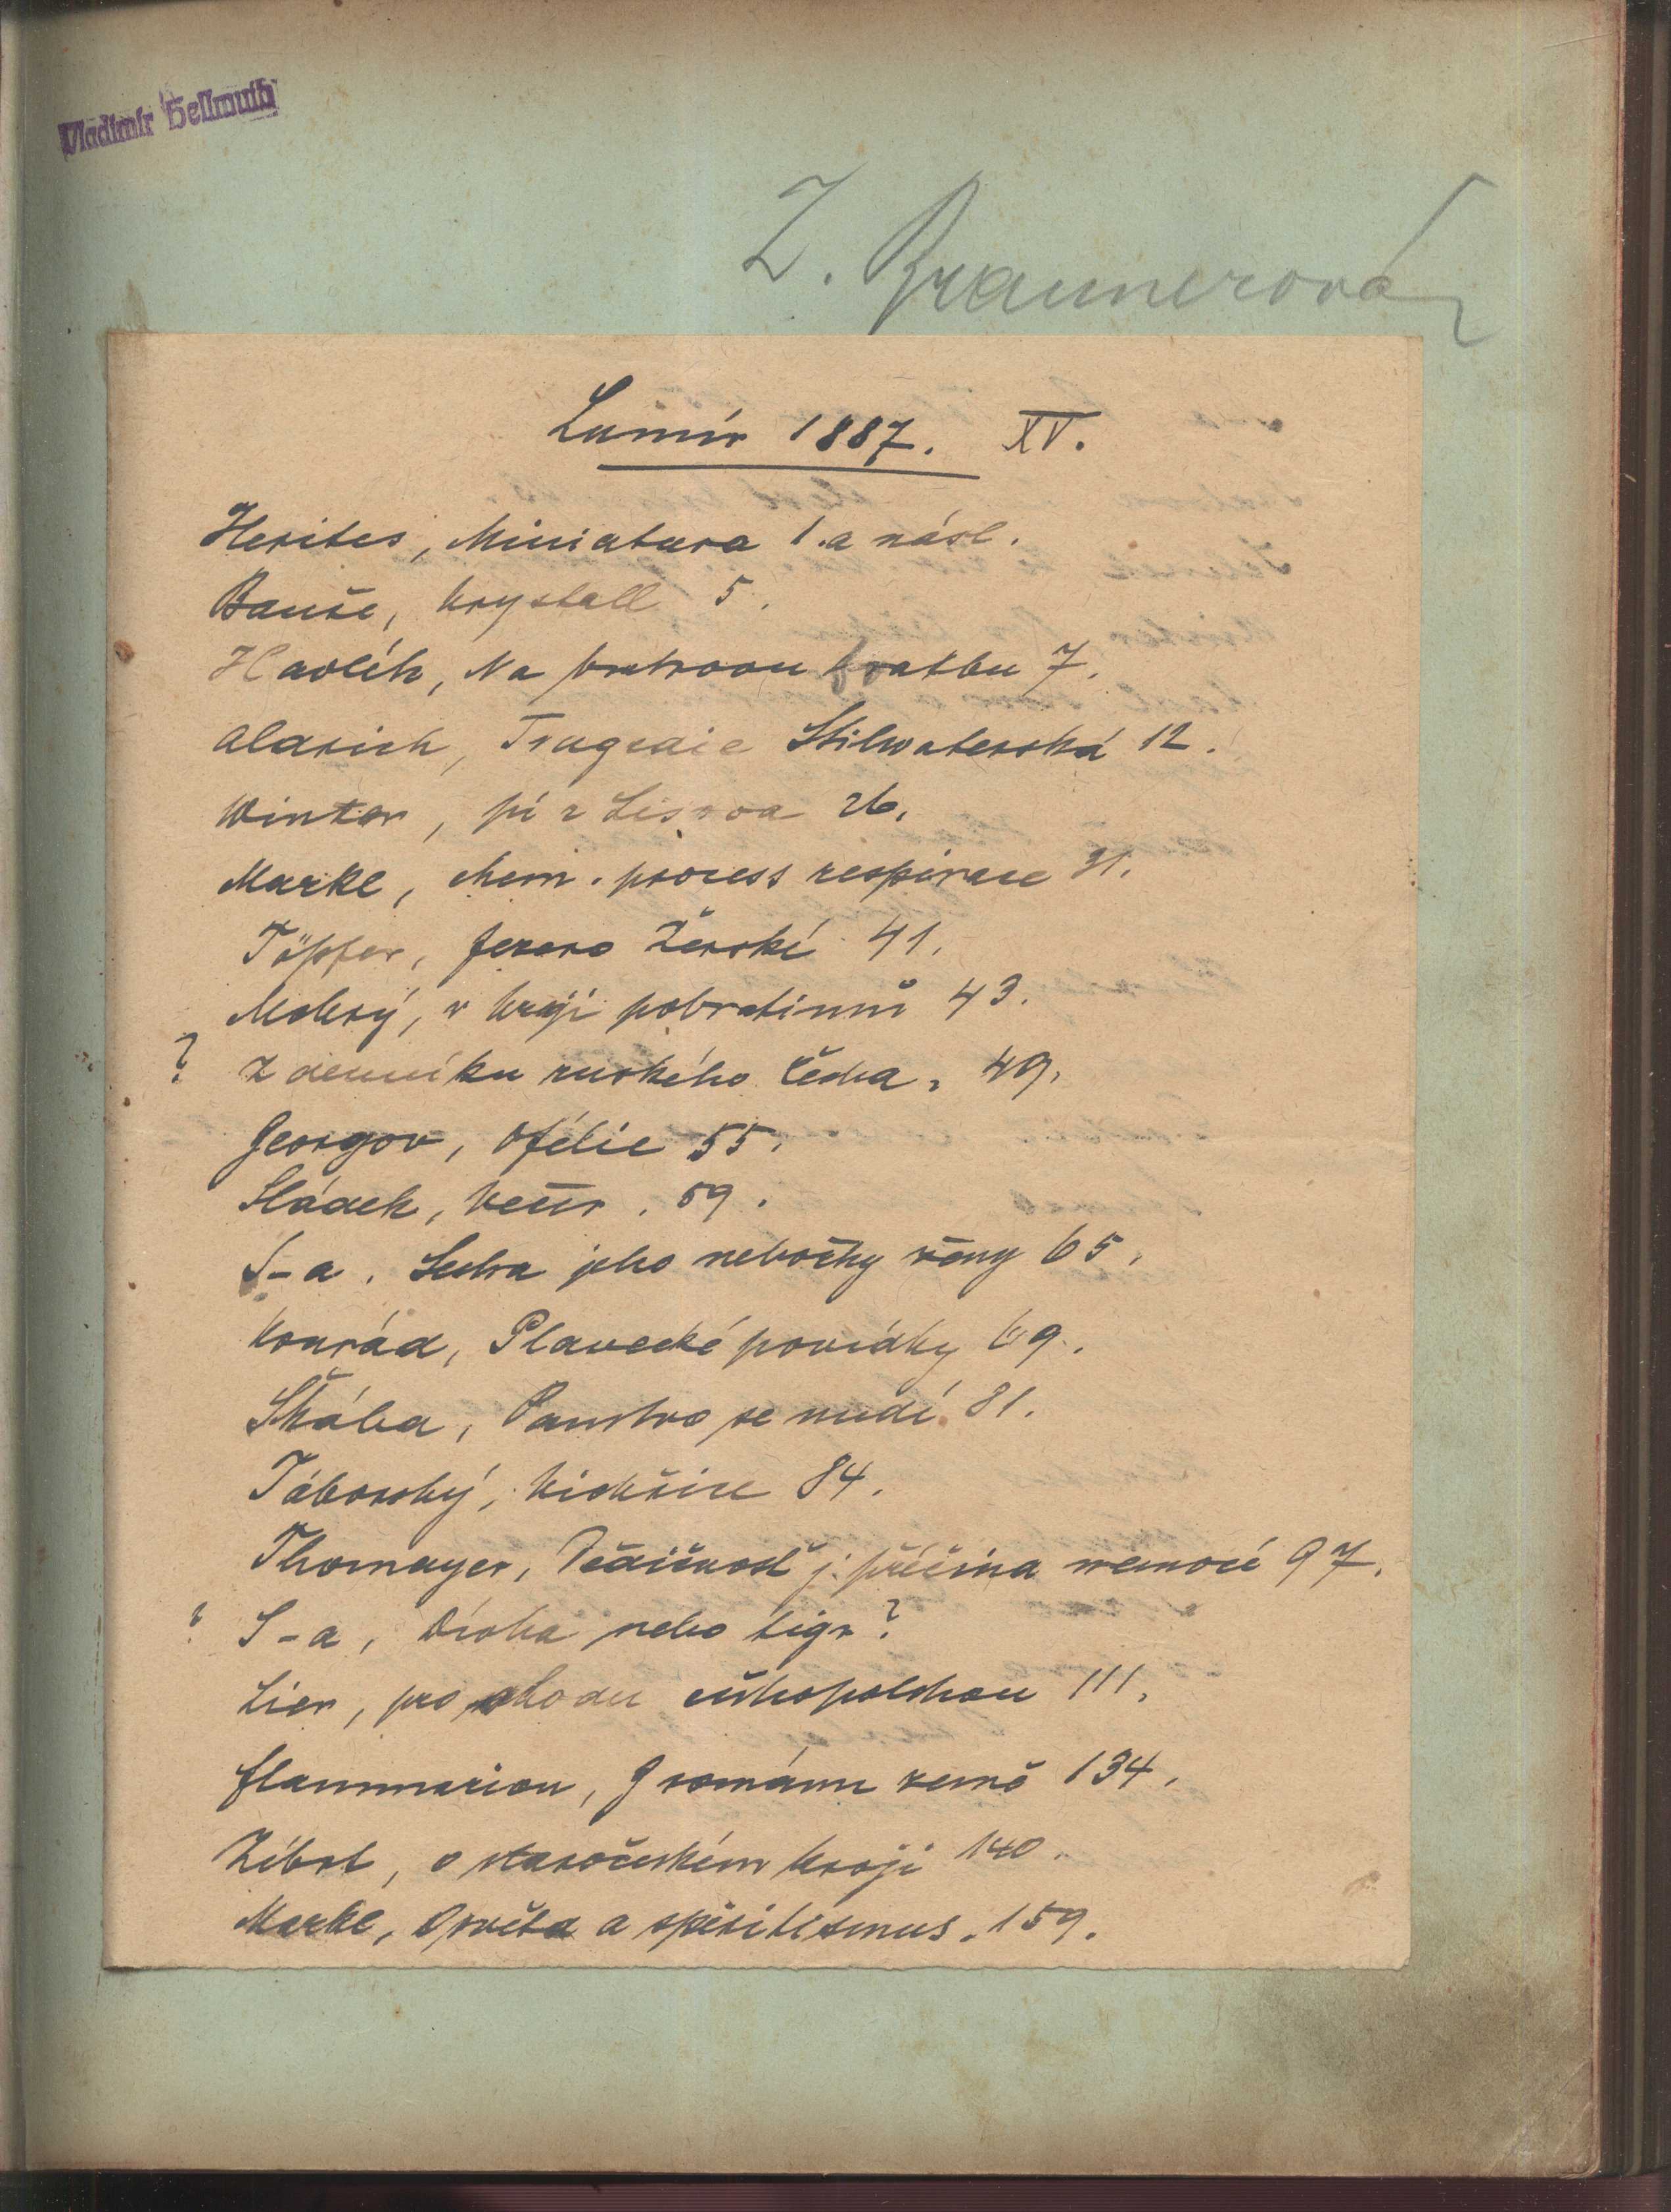 Vladimír Hellmuth
Z. Braunerová
Lumír 1887. XV.
Herites, Miniatura 1. a násl.
Bauše, krystall 5.
Havlík, Na bratrovu svatbu 7.
Aldrich, Tragedie Stilwaterská 12.
Winter, pí z Lisova 26.
Markl, chem. process respirace 31.
Töpfer, jezero Žerské 41.
Mokrý, v kraji pobratimů 43.
? Z denníku ruského Čecha, 49.
Georgov, Ofélie 55.
Sládek, večer, 59.
S-a, Sestra jeho nebožky ženy 65.
Konrád, Plavecké povídky 69.
Škába, Panstvo se nudí 81.
Táborský, vichřice 84.
Thomayer, Dědičnosť j. příčina nemocí 97.
? S-a, Dívka nebo tigr?
Lier, pro shodu českopolskou 111.
Flammarion, Z románu země 134.
Zíbrt, o staročeském kroji 140.
Markl, Osvěta a spiritismus. 159.